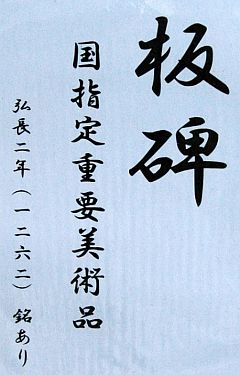 板碑
国指定重要美術品
弘長二年（一二六二）銘あり